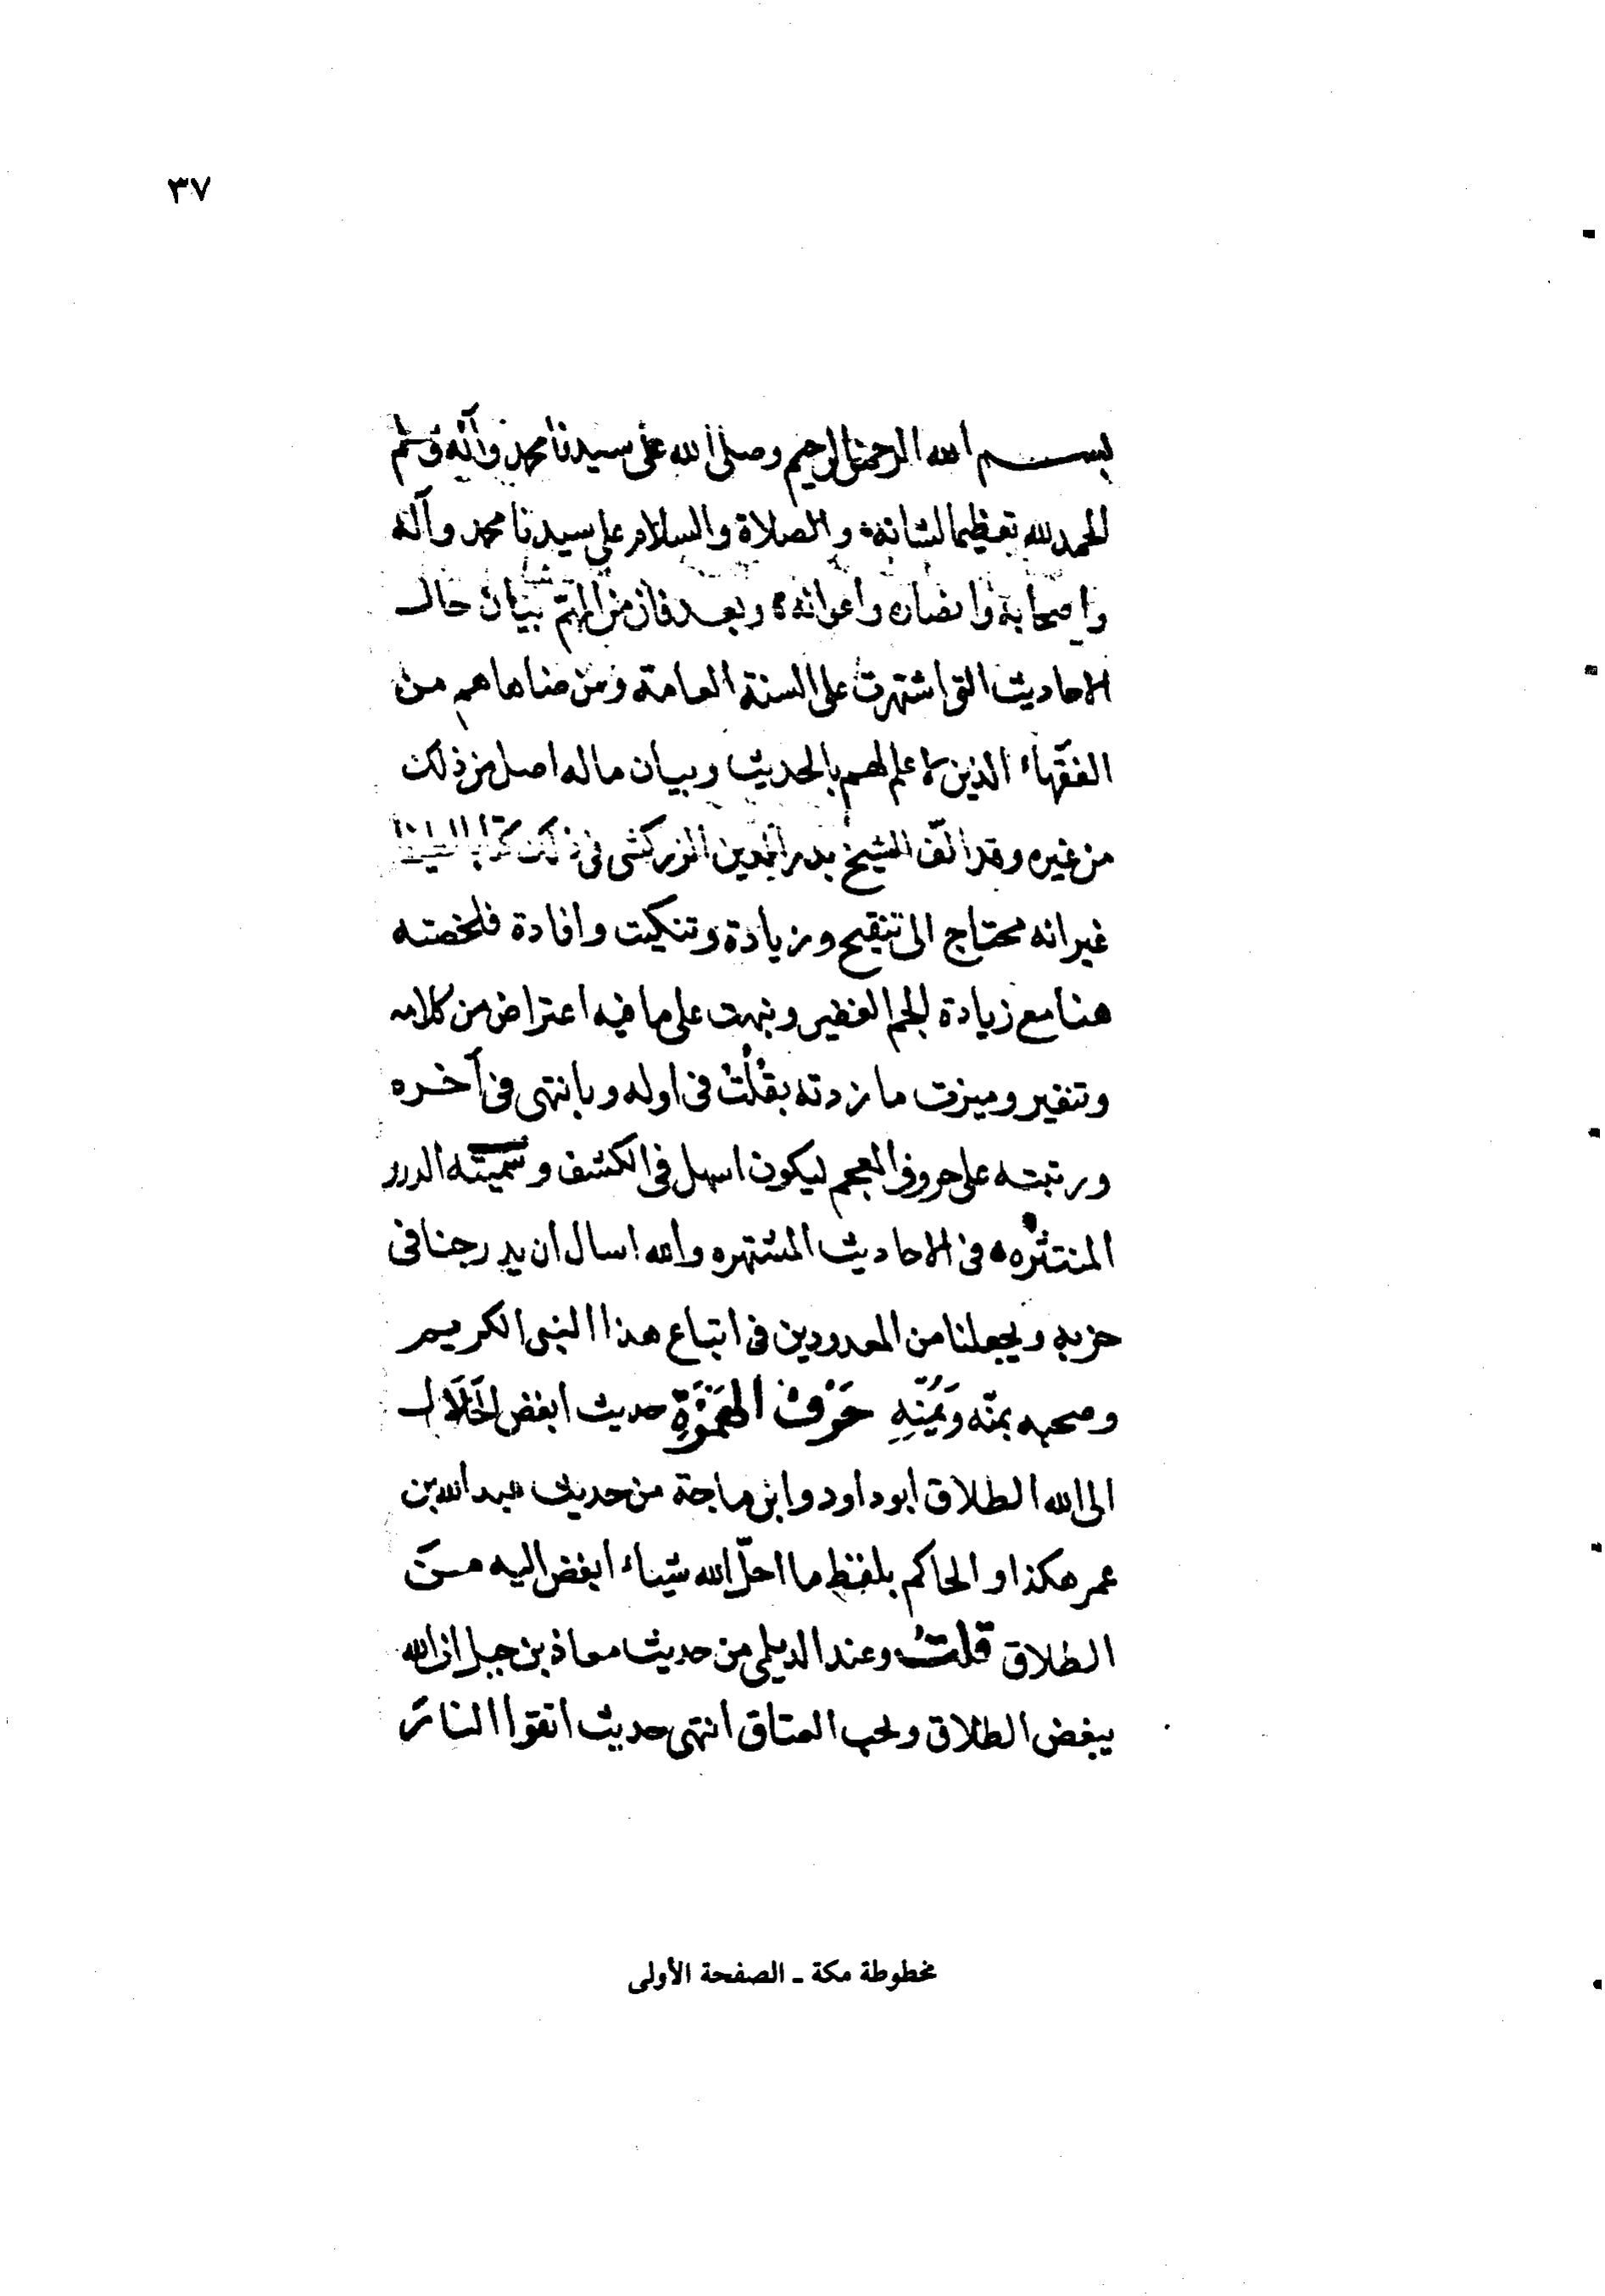 ٣٧
بسم الله الرحمن الرحيم وصلى الله على سيدنا محمد وآله وسلم
الحمد لله تعظيما لشانه والصلاة والسلام على سيدنا محمد وآله
واصحابه وانصاره واعوانه وبعد فان من المهم بيان حال
الاحاديث التى اشتهرت على السنة العامة ومن ضاهاهم من
الفقهاء الذين لا علم لهم بالحديث وبيان ماله اصل من ذلك
من غيره وقد الّف الشيخ بدر الدين الزركشى فى ذلك كتابا لطيفا
غير انه محتاج الى تنقيح وزيادة وتنكيت وافادة فلخصته
هنا مع زيادة الجم الغفير ونبهت على ما فيه اعتراض من كلامه
وتنقير وميزت ما زدته بقُلْتُ فى اوله وبانتهى فى آخره
ورتبته على حروف المعجم ليكون اسهل فى الكشف وسميته الدرر
المنتثره فى الاحاديث المشتهره والله اسال ان يدرجنا فى
حزبه ويجعلنا من المعدودين فى اتباع هذا النبى الكريم
وصحبه بمنّه وَيُمْنِهِ حَرْفُ الهَمْزَةِ حديث ابغض الحَلَال
الى الله الطلاق ابو داود وابن ماجة من حديث عبد الله بن
عمر هكذا و الحاكم بلفظ ما احلّ الله شيئاء ابغض اليه من
الطلاق قلتُ وعند الديلمى من حديث معاذ بن جبل ان الله
يبغض الطلاق ويحب العتاق انتهى حديث اتقوا النار
مخطوطة مكة - الصفحة الأولى